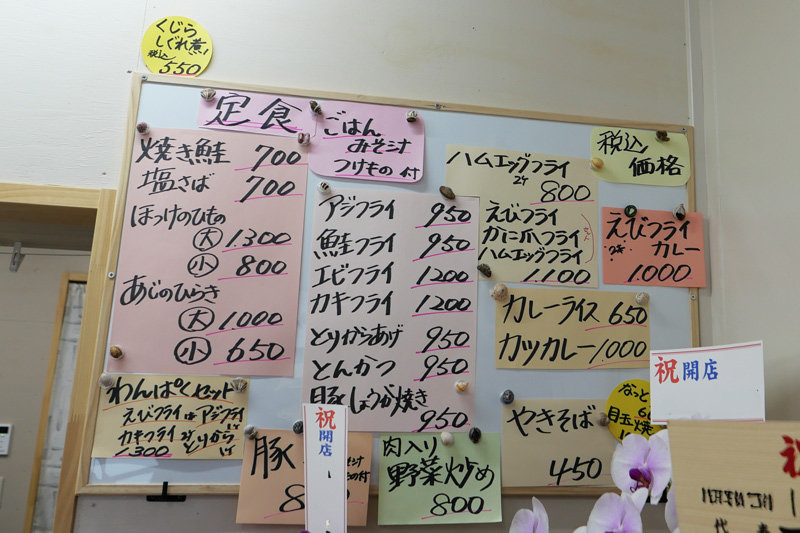 くじら
しぐれ煮
税込
550
定食
ごはん
みそ汁
つけもの付
焼き鮭 700
塩さば 700
ほっけのひもの
大 1.300
小 800
あじのひらき
大 1.000
小 650
アジフライ 950
鮭フライ 950
エビフライ 1200
カキフライ 1200
とりからあげ 950
とんかつ 950
豚しょうが焼き
950
ハムエッグフライ
2ヶ
800
えびフライ
かに爪フライ
ハムエッグフライ
1.100
税込
価格
えびフライ
カレー
1000
カレーライス 650
カツカレー 1000
わんぱくセット
えびフライ
アジフライ
カキフライ
とりから
1.300
豚
肉入り
野菜炒め
800
やきそば
450
なっと
目玉焼
祝
開店
祝開店
祝
代表